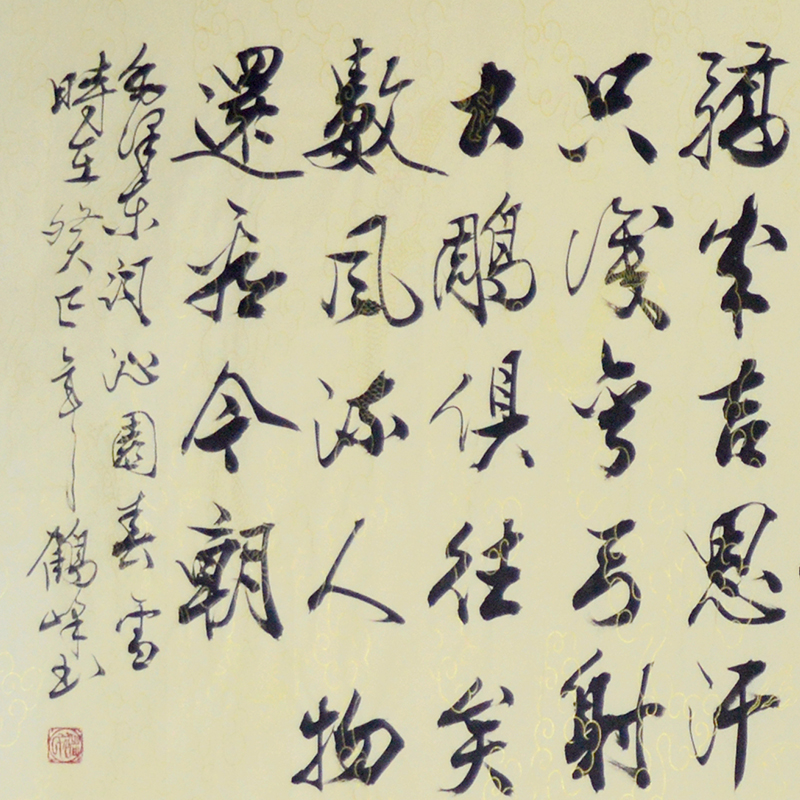 驕成吉思汗
只識彎弓射
大鵰俱往矣
數風流人物
還看今朝
毛澤東詞沁園春雪
時在癸巳年鶴峰书